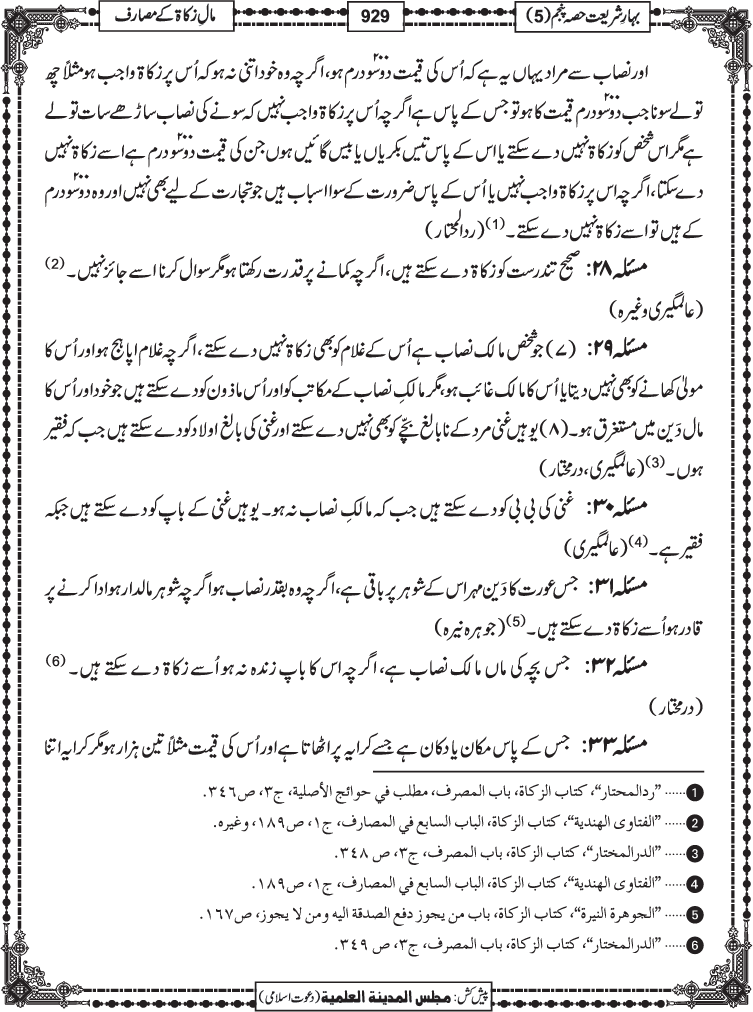 بہارِ شریعت حصہ پنجم (5)
929
مالِ زکاۃ کے مصارف
اور نصاب سے مراد یہاں یہ ہے کہ اُس کی قیمت دو سو۲۰۰ درم ہو، اگرچہ وہ خود اتنی نہ ہو کہ اُس پر زکاۃ واجب ہو مثلاً چھ
تولے سونا جب دو سو۲۰۰ درم قیمت کا ہو تو جس کے پاس ہے اگرچہ اُس پر زکاۃ واجب نہیں کہ سونے کی نصاب ساڑھے سات تولے
ہے مگر اس شخص کو زکاۃ نہیں دے سکتے یا اس کے پاس تیس بکریاں یا بیس گائیں ہوں جن کی قیمت دو سو۲۰۰ درم ہے اسے زکاۃ نہیں
دے سکتا، اگرچہ اس پر زکاۃ واجب نہیں یا اُس کے پاس ضرورت کے سوا اسباب ہیں جو تجارت کے لیے بھی نہیں اور وہ دو سو۲۰۰ درم
کے ہیں تو اسے زکاۃ نہیں دے سکتے۔ (1) (ردالمحتار)
مسئلہ ۲۸: صحیح تندرست کو زکاۃ دے سکتے ہیں، اگرچہ کمانے پر قدرت رکھتا ہو مگر سوال کرنا اسے جائز نہیں۔ (2)
(عالمگیری وغیرہ)
مسئلہ ۲۹: (۷) جو شخص مالک نصاب ہے اُس کے غلام کو بھی زکاۃ نہیں دے سکتے، اگرچہ غلام اپاہج ہو اور اُس کا
مولیٰ کھانے کو بھی نہیں دیتا یا اُس کا مالک غائب ہو، مگر مالکِ نصاب کے مکاتب کو اور اُس ماذون کو دے سکتے ہیں جو خود اور اُس کا
مال دَین میں مستغرق ہو۔ (۸) یوہیں غنی مرد کے نابالغ بچّے کو بھی نہیں دے سکتے اور غنی کی بالغ اولاد کو دے سکتے ہیں جب کہ فقیر
ہوں۔ (3) (عالمگیری، درمختار)
مسئلہ ۳۰: غنی کی بی بی کو دے سکتے ہیں جب کہ مالکِ نصاب نہ ہو۔ یوہیں غنی کے باپ کو دے سکتے ہیں جبکہ
فقیر ہے۔ (4) (عالمگیری)
مسئلہ ۳۱: جس عورت کا دَین مہر اس کے شوہر پر باقی ہے، اگرچہ وہ بقدر نصاب ہو اگرچہ شوہر مالدار ہو ادا کرنے پر
قادر ہو اُسے زکاۃ دے سکتے ہیں۔ (5) (جوہرہ نیرہ)
مسئلہ ۳۲: جس بچہ کی ماں مالک نصاب ہے، اگرچہ اس کا باپ زندہ نہ ہو اُسے زکاۃ دے سکتے ہیں۔ (6)
(درمختار)
مسئلہ ۳۳: جس کے پاس مکان یا دکان ہے جسے کرایہ پر اٹھاتا ہے اور اُس کی قیمت مثلاً تین ہزار ہو مگر کرایہ اتنا
1 ...... ”ردالمحتار“، کتاب الزکاة، باب المصرف، مطلب في حوائج الأصلية، ج۳، ص۳٤٦.
2 ...... ”الفتاوی الهندية“، کتاب الزکاة، الباب السابع في المصارف، ج۱، ص۱۸۹، وغيره.
3 ...... ”الدرالمختار“، کتاب الزکاة، باب المصرف، ج۳، ص ۳٤۸.
4 ...... ”الفتاوی الهندية“، کتاب الزکاة، الباب السابع في المصارف، ج۱، ص۱۸۹.
5 ...... ”الجوهرة النيرة“، کتاب الزکاة، باب من يجوز دفع الصدقة اليه ومن لا يجوز، ص۱٦۷.
6 ...... ”الدرالمختار“، کتاب الزکاة، باب المصرف، ج۳، ص ۳٤۹.
پیش کش: مجلس المدینة العلمیة (دعوتِ اسلامی)